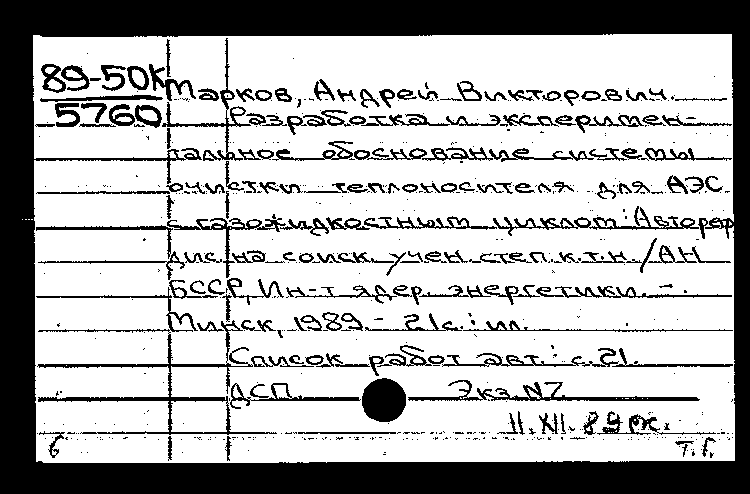 89-50К
5760
Марков, Андрей Викторович.
Разработка и эксперимен-
тальное обоснование системы
очистки теплоносителя для АЭС
с газожидкостным циклом: Автореф
дис. на соиск. учен. степ. к.т.н. / АН
БССР, Ин-т ядер. энергетики. -
Минск, 1989. - 21 с.: ил.
Список работ авт.: с. 21.
ДСП. Экз. N7.
11. XII. 89
б Т.Г.